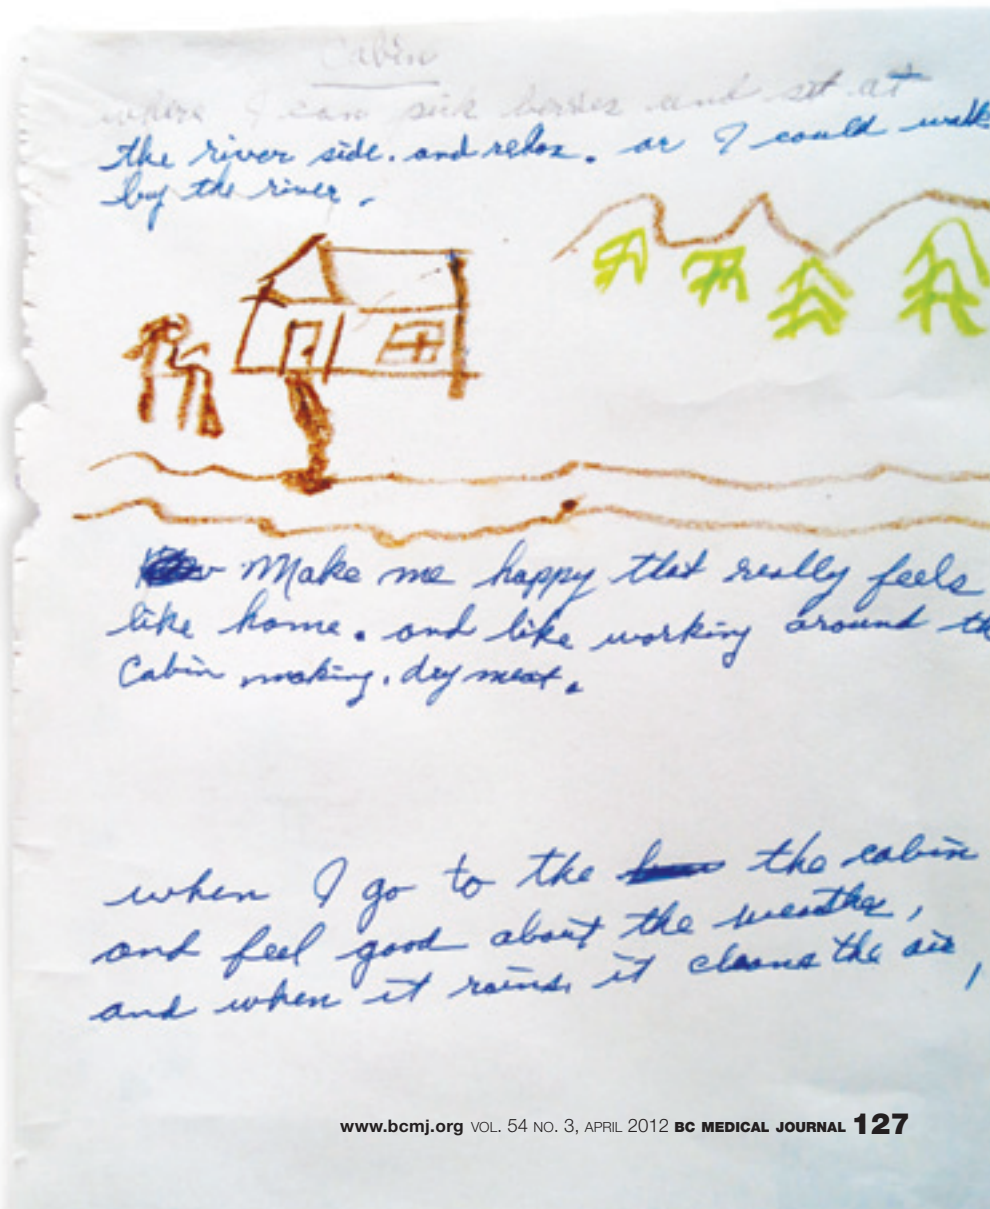 Cabin
where I can pick berries and sit at
the river side. and relax. or I could walk
by the river.
Make me happy that really feels
like home. and like working around th
Cabin making. dry meat.
when I go to the the cabin
and feel good about the weather,
and when it rains, it cleans the air,
www.bcmj.org VOL. 54 NO. 3, APRIL 2012 BC MEDICAL JOURNAL 127